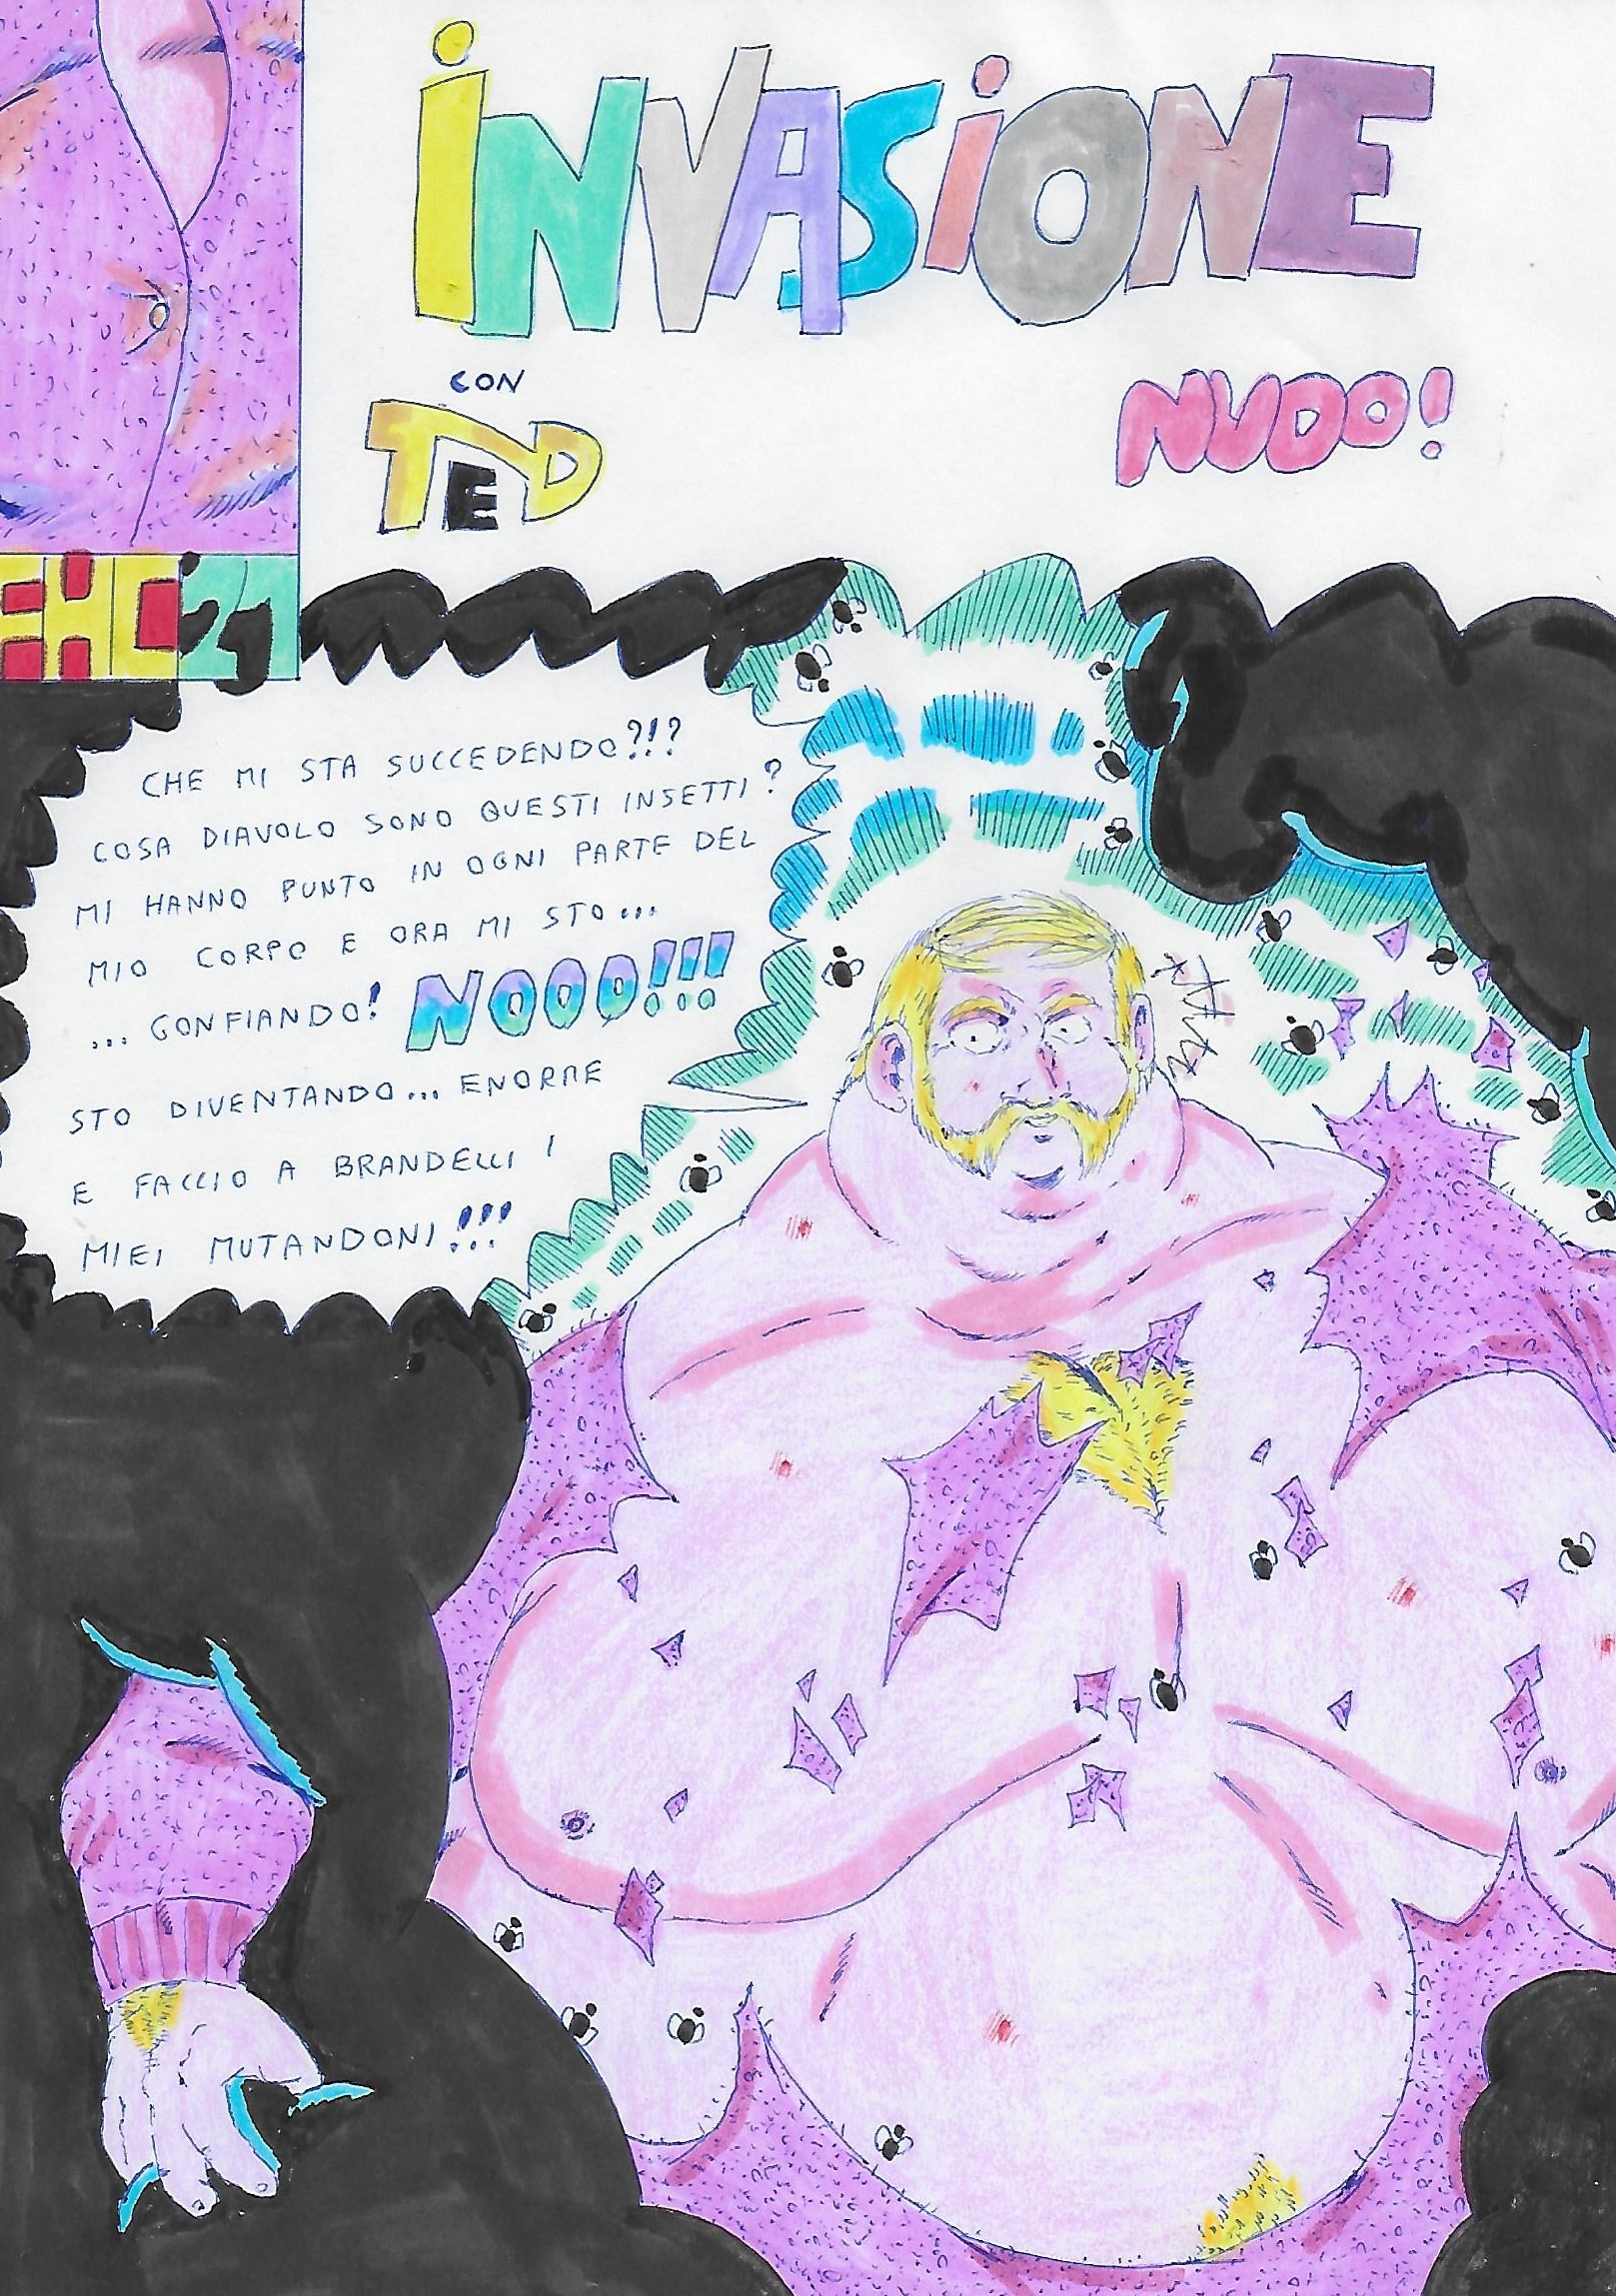 iNVASiONE
CON
TED
NUDO!
EHC'21
CHE MI STA SUCCEDENDO?!?
COSA DIAVOLO SONO QUESTI INSETTI?
MI HANNO PUNTO IN OGNI PARTE DEL
MIO CORPO E ORA MI STO...
... GONFIANDO! NOOO!!!
STO DIVENTANDO... ENORME
E FACCIO A BRANDELLI I
MIEI MUTANDONI!!!